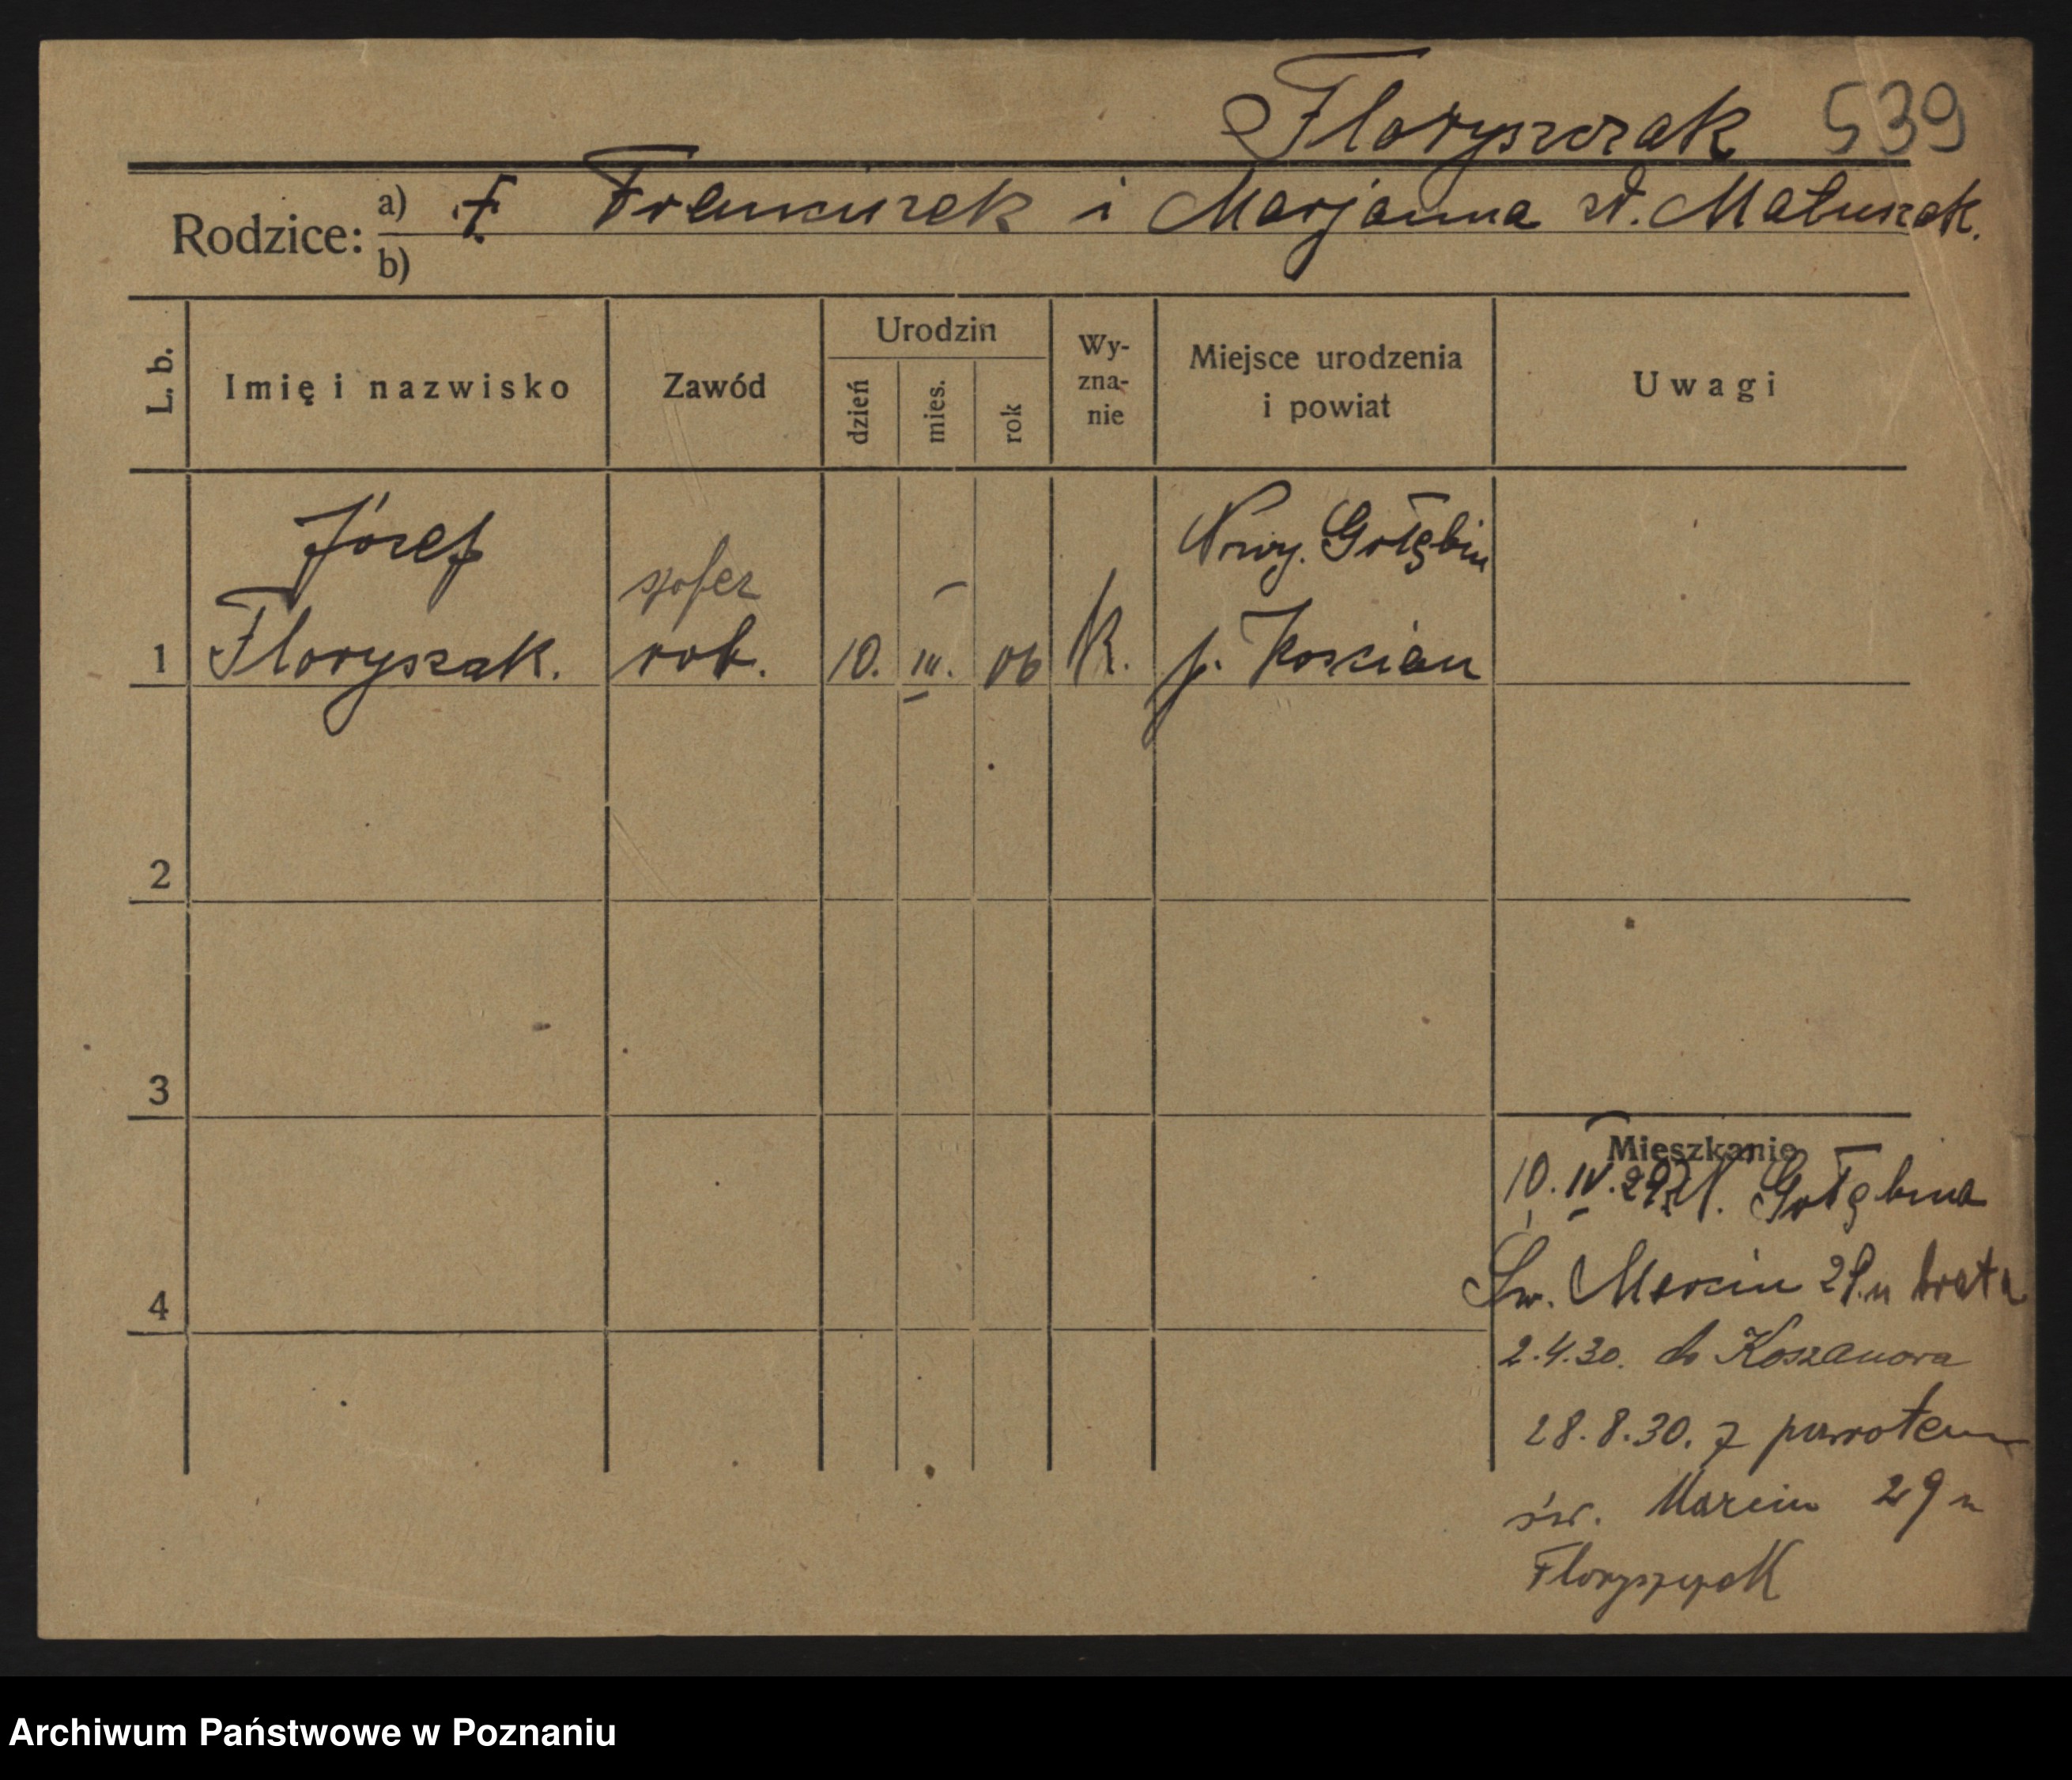 Floryszczak 539
Rodzice: a) Franciszek i Marjanna zd. Matuszak.
b)
L. b.
Imię i nazwisko
Zawód
Urodzin
dzień
mies.
rok
Wy-
zna-
nie
Miejsce urodzenia
i powiat
Uwagi
Józef
Floryszak.
szofer
rob.
10. III. 06
K.
Nowy. Gołębin
p. Koscian
1
2
3
4
Mieszkanie
10. IV. 29 z N. Gołębina
Św. Marcin 29. u brata
2.4.30. do Koszanowa
28.8.30. z powrotem
św. Marcin 29 u
Floryszczak
Archiwum Państwowe w Poznaniu